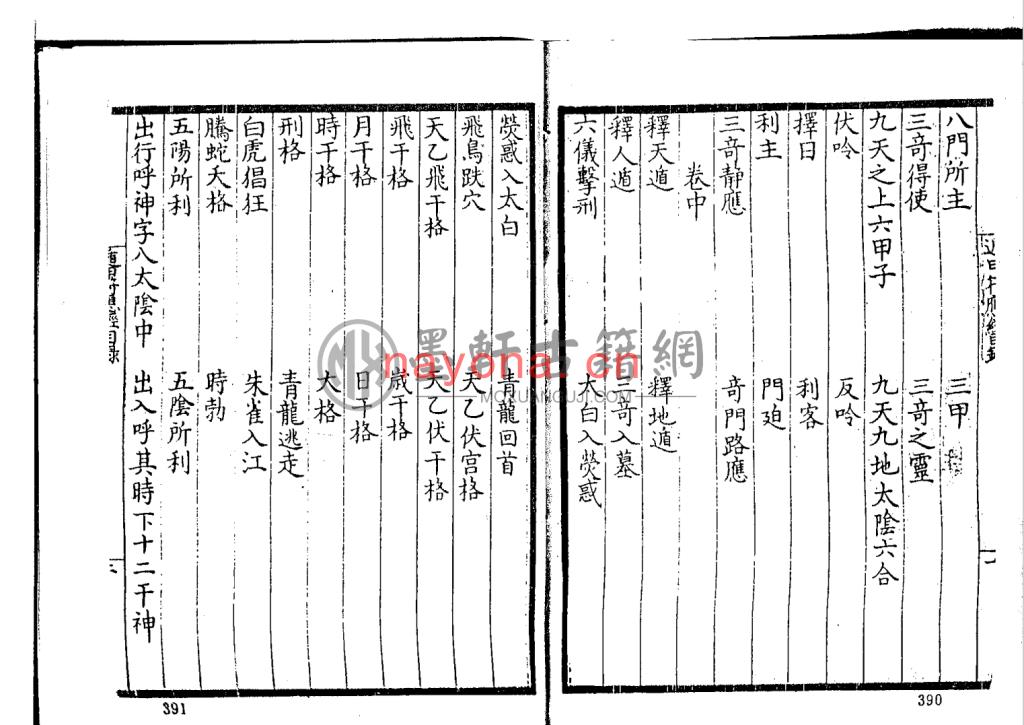 八門所主 三甲
三竒得使 三竒之靈
九天之上六甲子 九天九地太陰六合
伏唫 反唫
擇日 利客
利主 門廹
三竒静應 竒門路應
卷中
釋天遁 釋地遁
釋人遁 三竒入墓
六儀擊刑 太白入熒惑
390
熒惑入太白 青龍回首
飛鳥跌穴 天乙伏宫格
天乙飛干格 天乙伏干格
飛干格 歲干格
月干格 日干格
時干格 大格
刑格 青龍逃走
白虎猖狂 朱雀入江
騰蛇夭格 時勃
五陽所利 五陰所利
出行呼神字入太陰中 出入呼其時下十二干神
391
墨軒古籍網
nayona.cn
MOXUANGUJI.COM